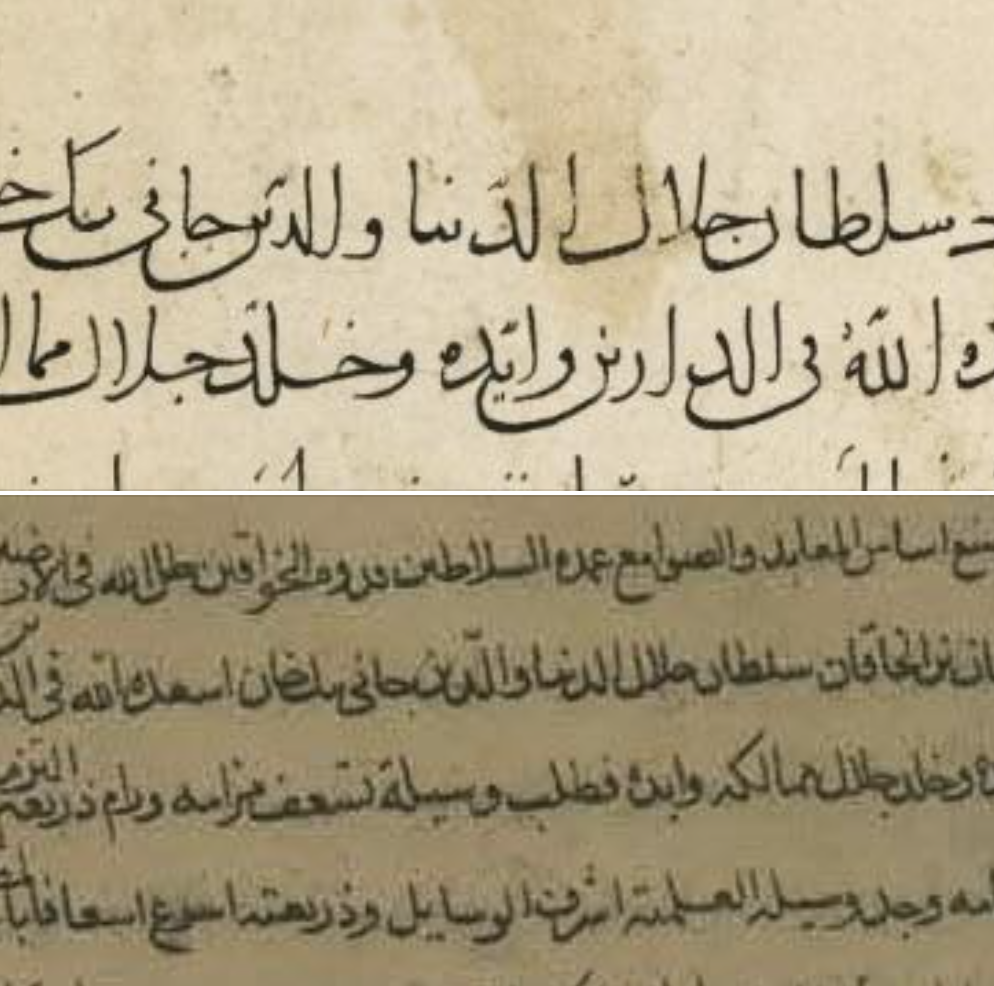 سلطان جلال الدنيا والدين جاني بك خا
ه الله في الدارين وايده وخلد جلال مما
اساس المعابد والصوامع عمدة السلاطين قدوة الخواقين ظل الله في الارضين
بن الخاقان سلطان جلال الدنيا والدين جاني بك خان اسعده الله في الد
وخلد جلال ممالكه وايده فطلب وسيلة تسعف مرامه ورام ذريعة
وجد وسيلة العلمية اشرف الوسايل وذريعته اسرع اسعافا